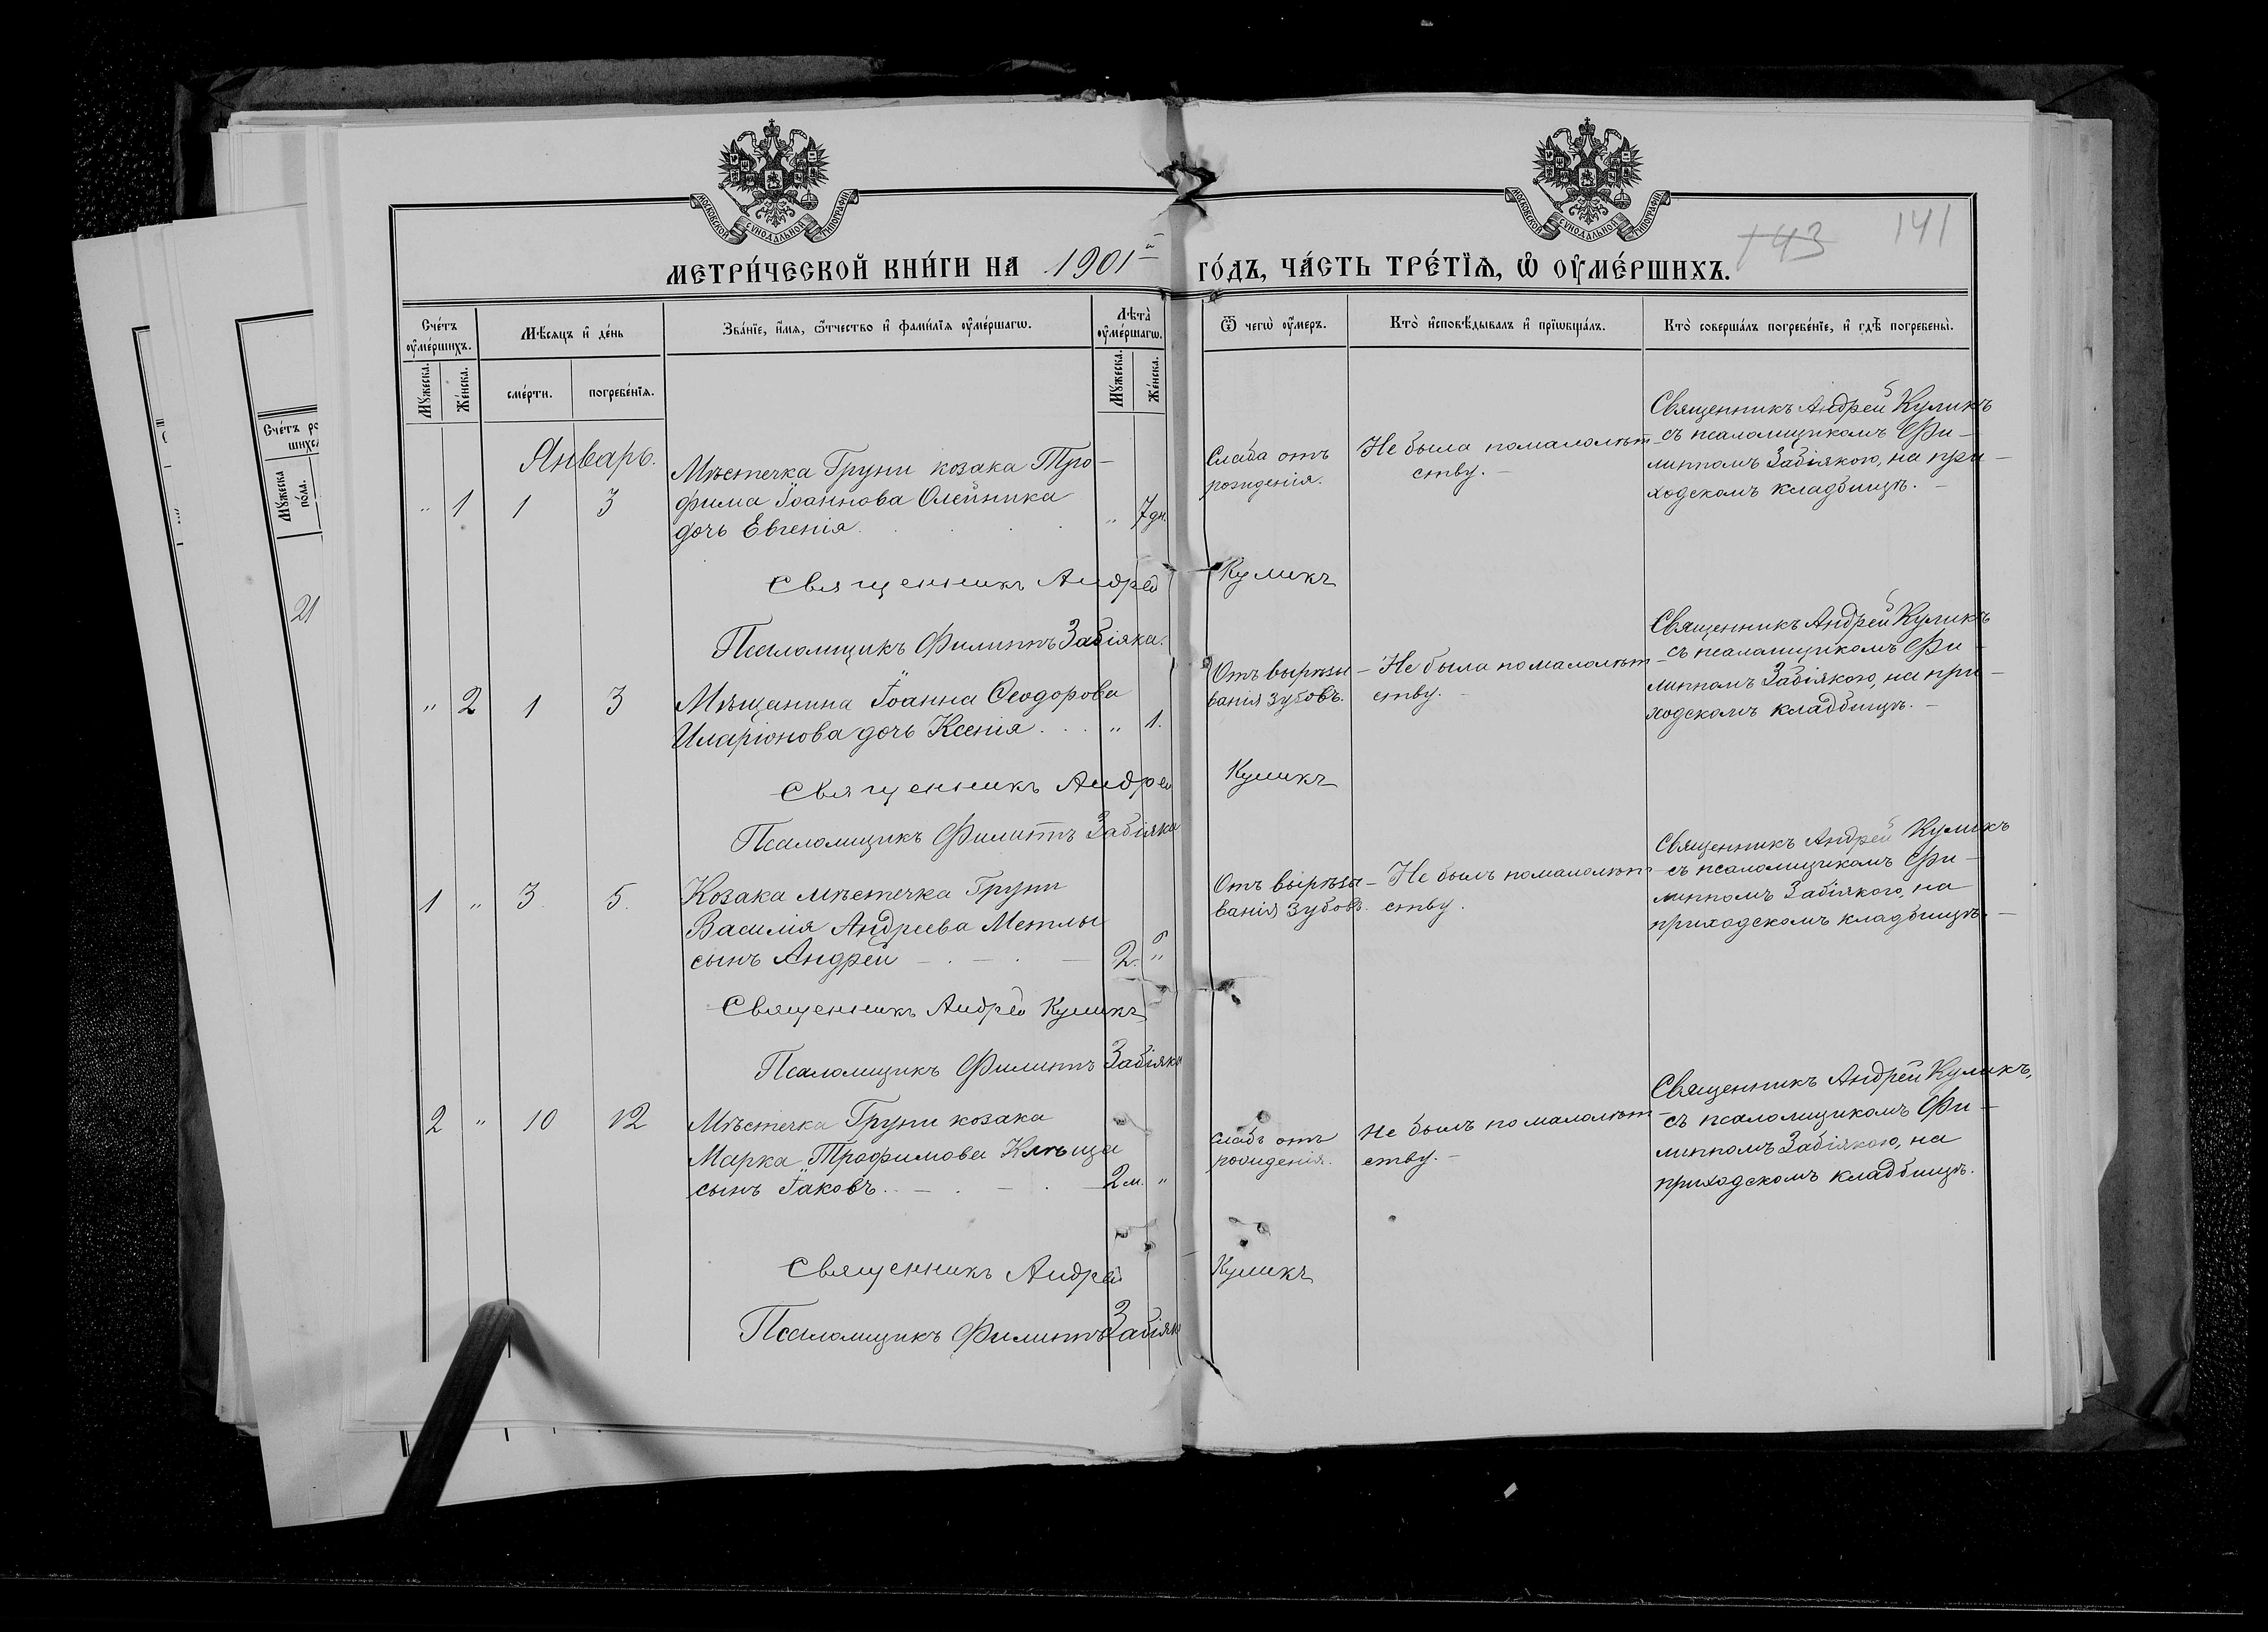 МОСКОВСКОЙ СѴНОДАЛЬНОЙ ТИПОГРАФІИ
МОСКОВСКОЙ СѴНОДАЛЬНОЙ ТИПОГРАФІИ
143 141
МЕТРИ́ЧЕСКОЙ КНИ́ГИ НА 1901й ГО́ДЪ, ЧА́СТЬ ТРЕ́ТЇѦ, Ѡ҆ ОУ҆МЕ́РШИХЪ.
Сче́тъ оу҆ме́ршихъ.
Мѣ́сяцъ и҆ де́нь
Зва́нїе, и҆́мя, ѻ҆́тчество и҆ фами́лїя оу҆ме́ршагѡ.
Лѣта̀ оу҆ме́ршагѡ.
Ѿ чегѡ̀ оу҆́меръ.
Кто̀ и҆сповѣ́дывалъ и҆ прїѡбща́лъ.
Кто̀ соверша́лъ погребе́нїе, и҆ гдѣ̀ погребены̀.
Мꙋжеска.
Же́нска.
сме́рти.
погребе́нїя.
Мꙋжеска.
Же́нска.
Январь.
" 1 1 3
Мѣстечка Груни козака Тро-
фима Іоаннова Олейника
дочь Евгенія.
" 7 дн.
Слаба отъ
рожденія.
Не была по малолѣт-
ству. -
Священникъ Андрей Куликъ
съ псаломщикомъ Фи-
липпомъ Забіякою, на при-
ходскомъ кладбищѣ. -
Священникъ Андрей Куликъ
Псаломщикъ Филиппъ Забіяка.
" 2 1 3
Мѣщанина Іоанна Ѳеодорова
Иларіонова дочь Ксенія . . .
" 1.
Отъ вырѣзы-
ванія зубовъ.
Не была по малолѣт-
ству. -
Священникъ Андрей Куликъ
съ псаломщикомъ Фи-
липпомъ Забіякою, на при-
ходскомъ кладбищѣ. -
Священникъ Андрей Куликъ
Псаломщикъ Филиппъ Забіяка
1 " 3 5.
Козака мѣстечка Груни
Василія Андреева Метлы
сынъ Андрей - . - . -
2. "
Отъ вырѣзы-
ванія зубовъ.
Не былъ по малолѣт-
ству.
Священникъ Андрей Куликъ
съ псаломщикомъ Фи-
липпомъ Забіякого, на
приходскомъ кладбищѣ. -
Священникъ Андрей Куликъ
Псаломщикъ Филиппъ Забіяка
2 " 10 12
Мѣстечка Груни козака
Марка Трофимова Клѣща
сынъ Іаковъ. - . - . -
2 м. "
Слабъ отъ
рожденія.
Не былъ по малолѣт-
ству. -
Священникъ Андрей Куликъ,
съ псаломщикомъ Фи-
липпомъ Забіякою, на
приходскомъ кладбищѣ.
Священникъ Андрей Куликъ
Псаломщикъ Филиппъ Забіяка
Сче́тъ ро
шихс
Мꙋжеска
по́ла.
21